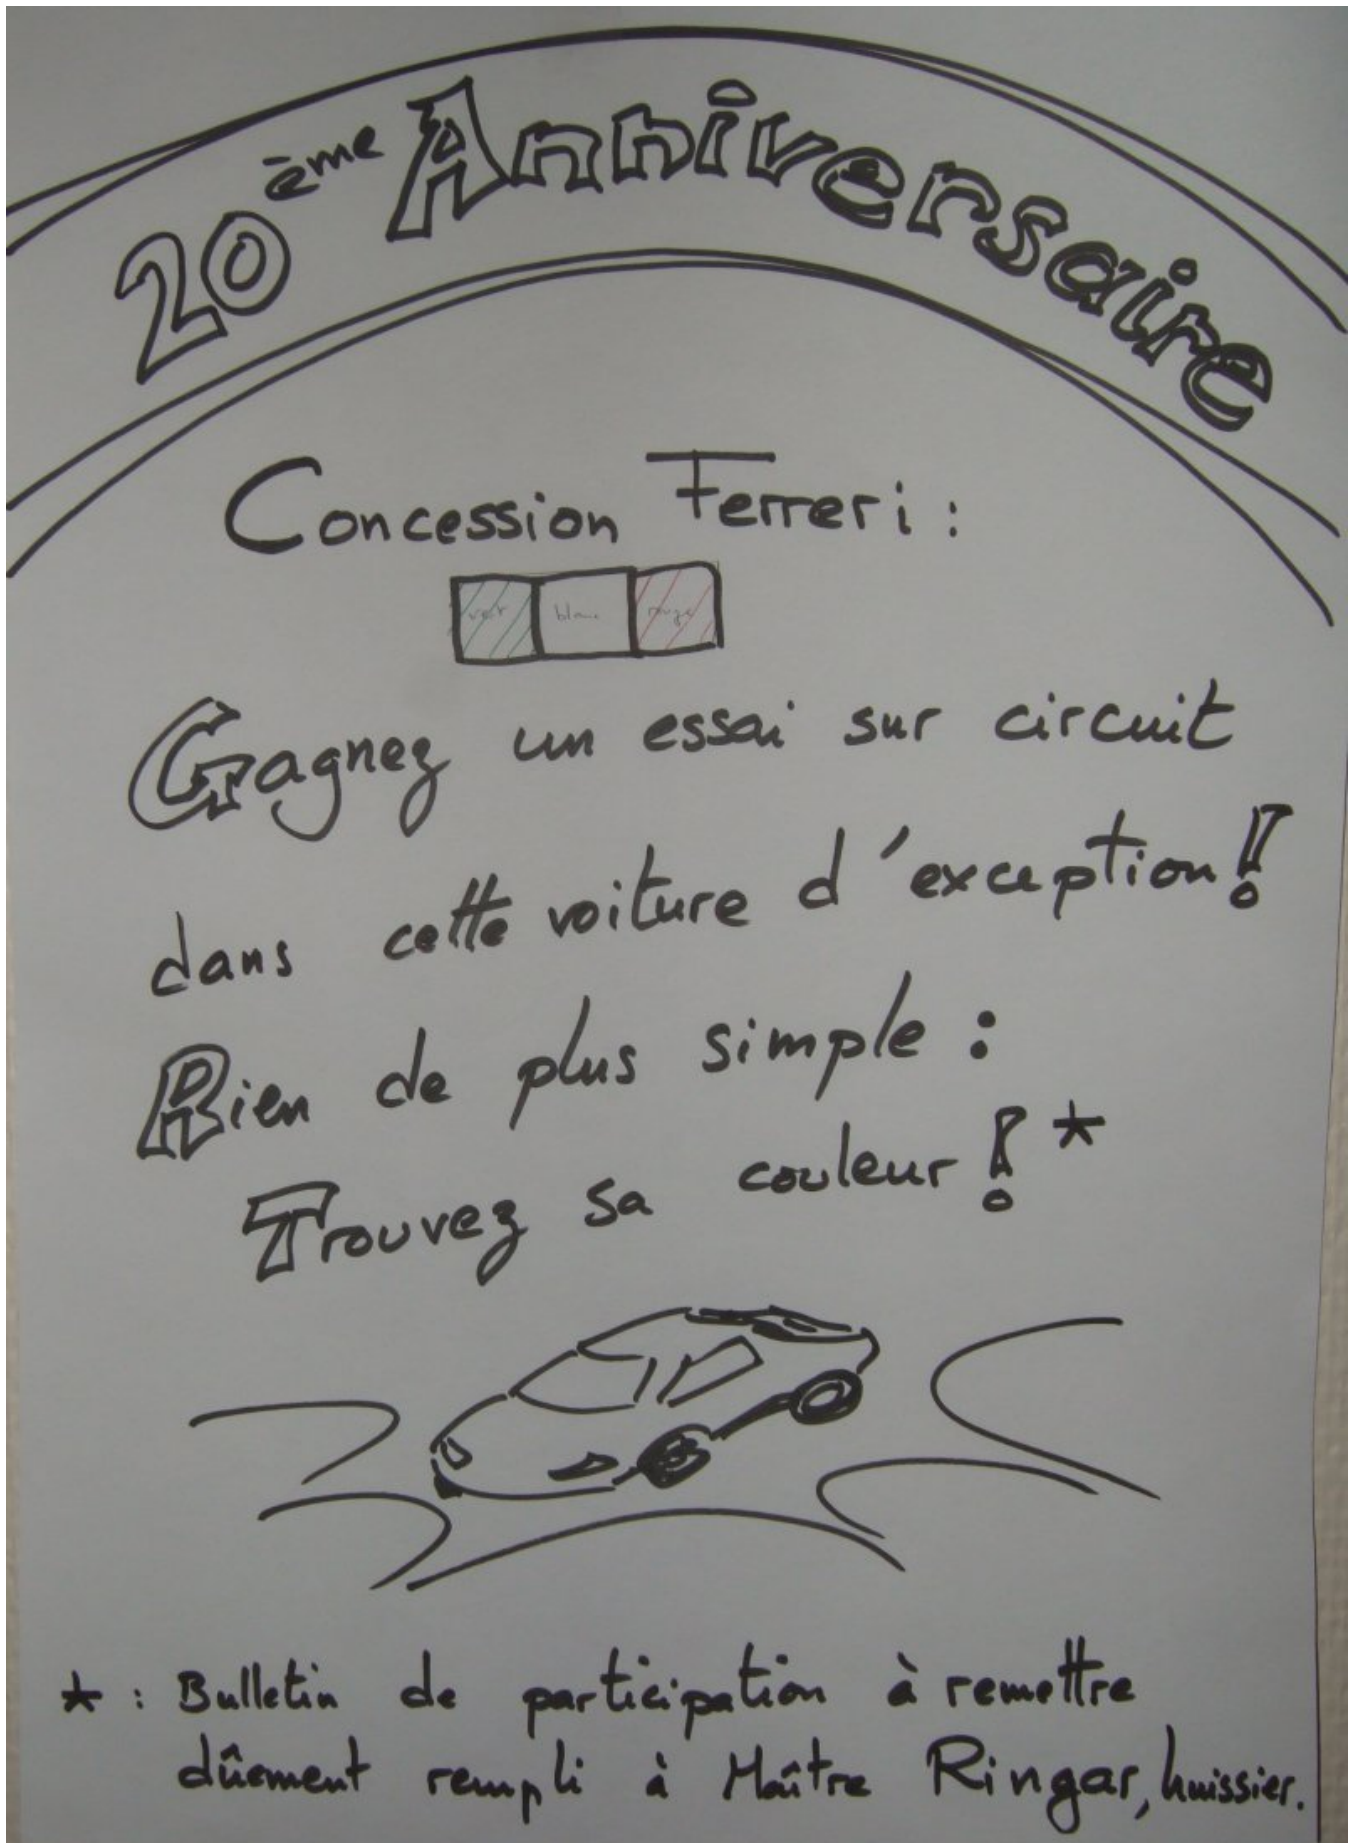 20ème Anniversaire
Concession Ferreri :
vert blanc rouge
Gagnez un essai sur circuit
dans cette voiture d'exception !
Rien de plus simple :
Trouvez sa couleur ! *
* : Bulletin de participation à remettre
dûement rempli à Maître Ringar, huissier.